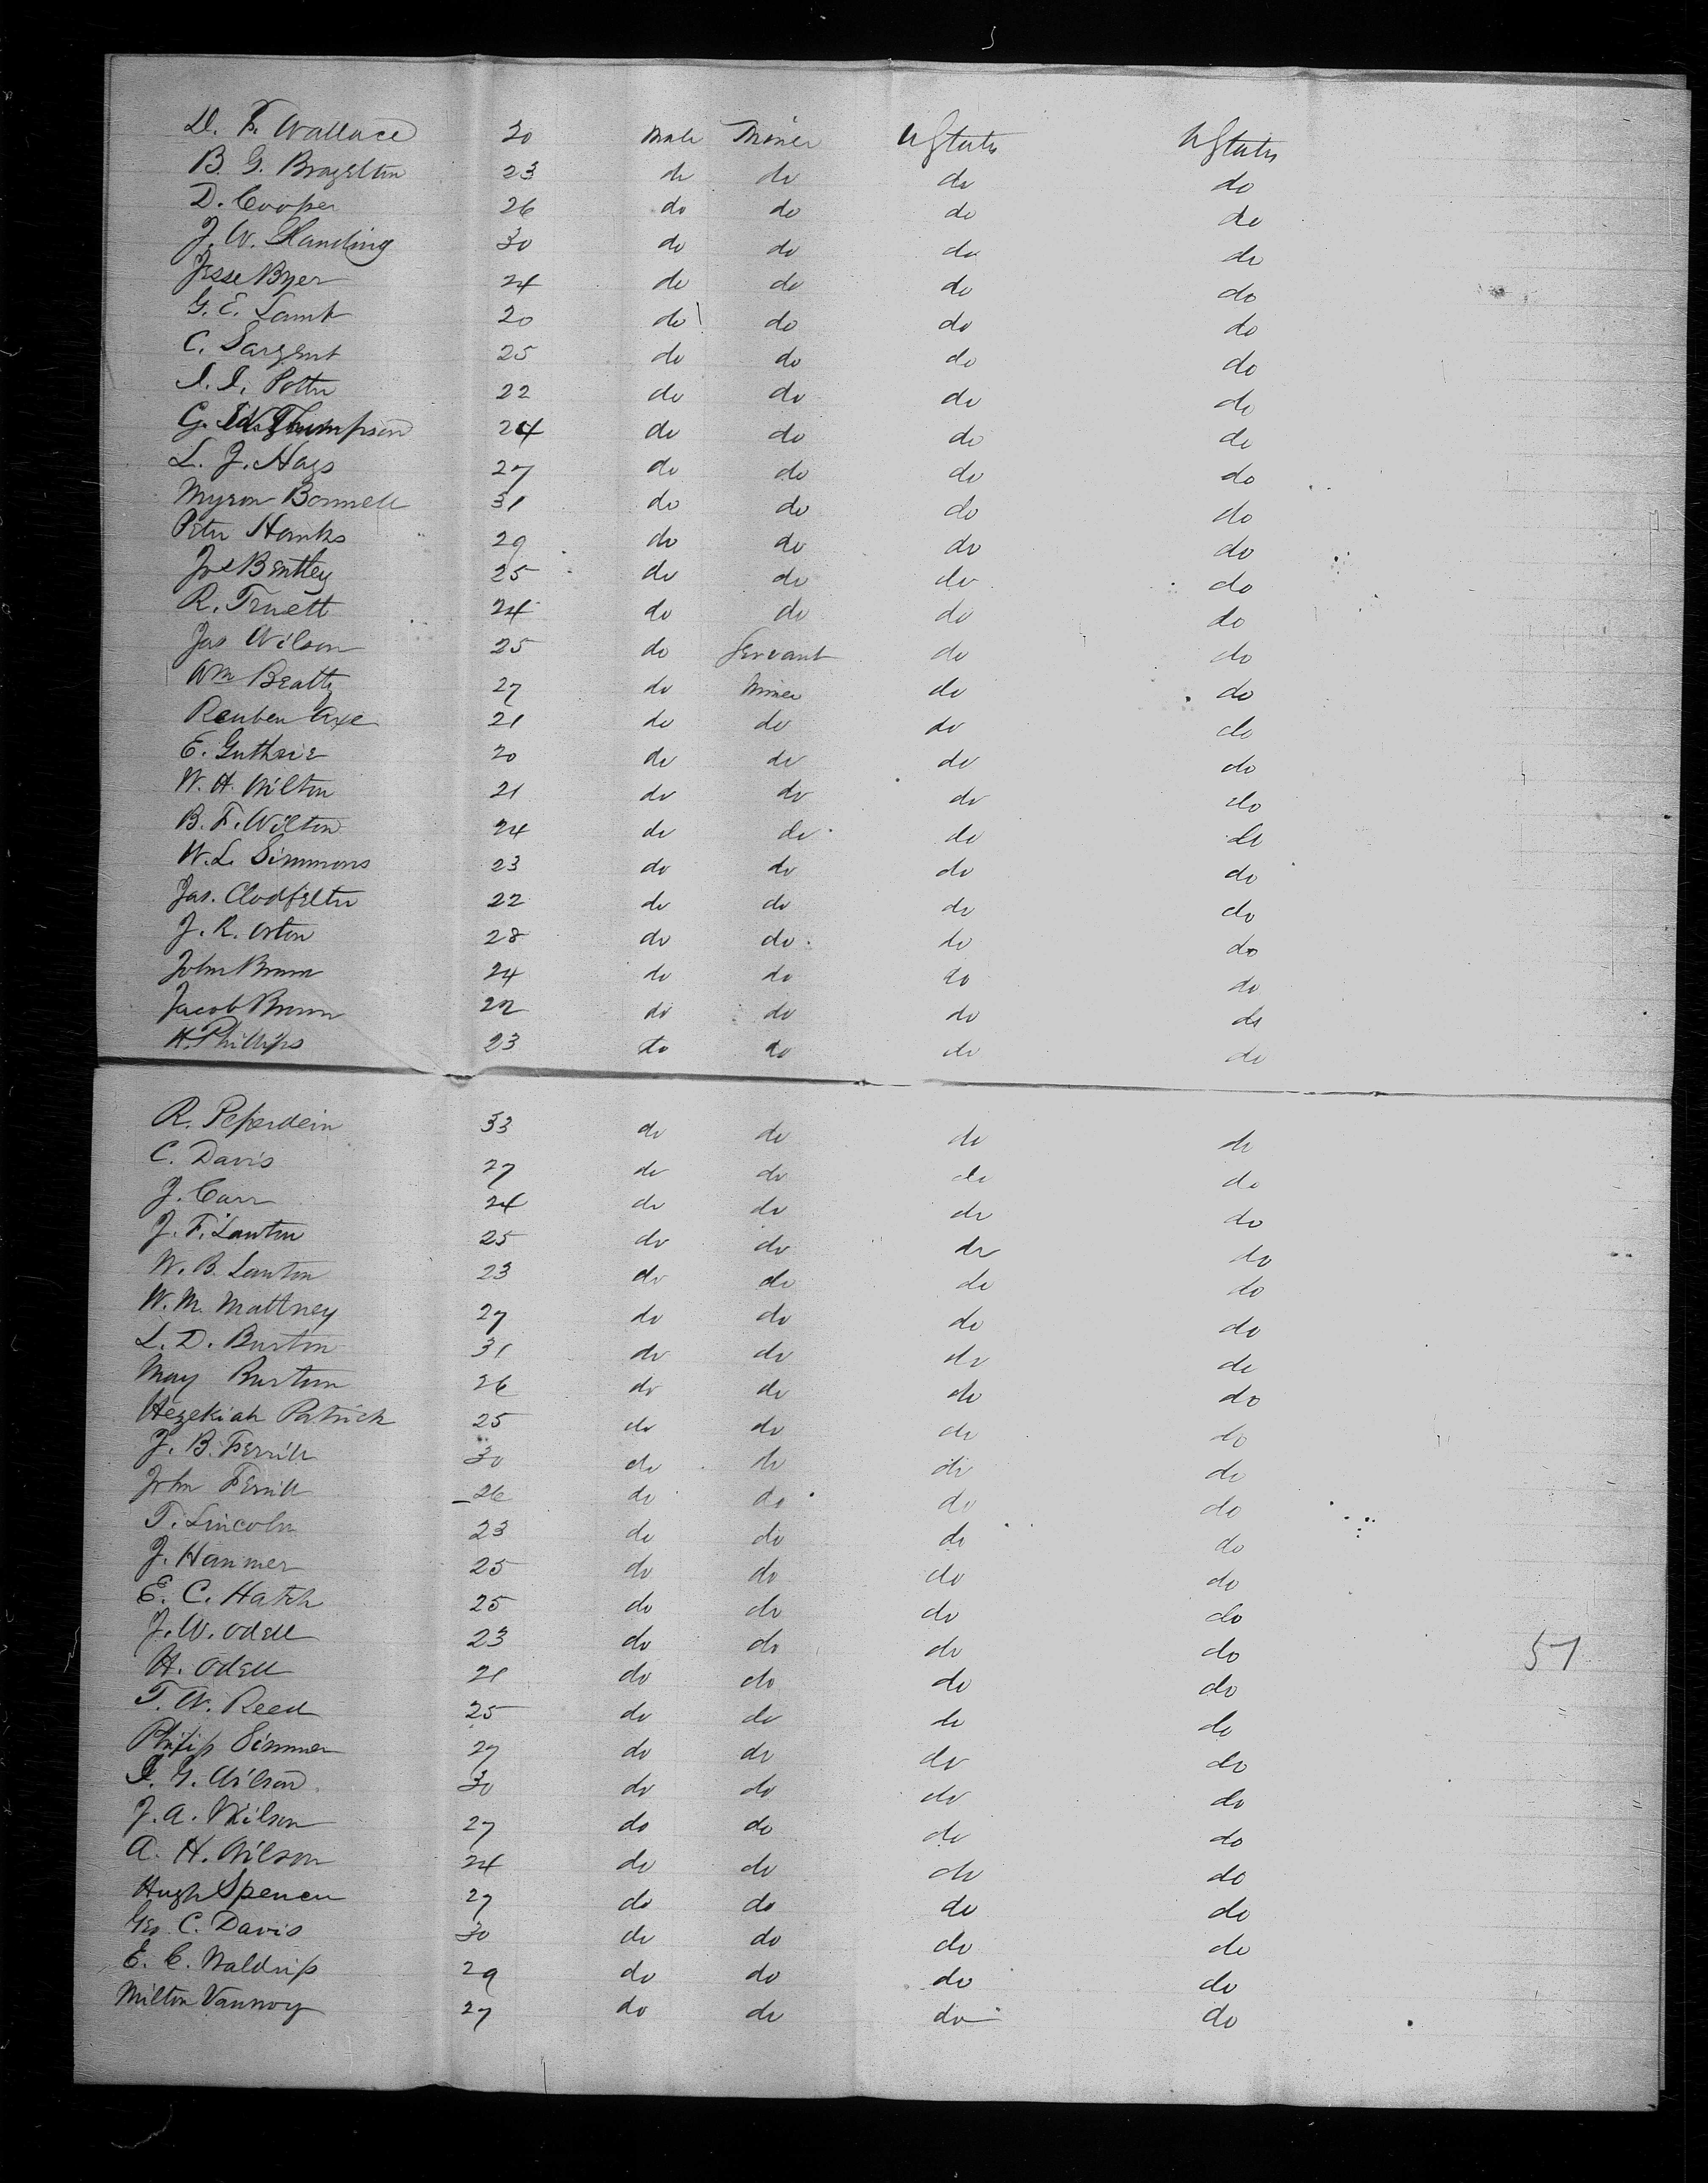 D. F. Wallace 20 Male Miner UStates UStates
B. G. Brazelton 23 do do do do
D. Cooper 26 do do do do
J. W. Harding 30 do do do do
Jesse Byer 24 do do do do
G. E. Lamb 20 do do do do
C. Sargent 25 do do do do
I. I. Potter 22 do do do do
G. W. Thompson 24 do do do do
L. J. Hays 27 do do do do
Myron Bonnell 31 do do do do
Peter Hanks 29 do do do do
Jos Bentley 25 do do do do
R. Truett 24 do do do do
Jas Wilson 25 do Servant do do
Wm Beatty 27 do Miner do do
Reuben Axe 21 do do do do
E. Guthrie 20 do do do do
W. H. Wilton 21 do do do do
B. F. Wilton 24 do do do do
W. L. Simmons 23 do do do do
Jas. Clodfelter 22 do do do do
J. R. Orton 28 do do do do
John Brown 24 do do do do
Jacob Brown 22 do do do do
H. Phillips 23 do do do do
R. Peperdein 33 do do do do
C. Davis 27 do do do do
J. Carr 24 do do do do
J. F. Lawton 25 do do do do
W. B. Lawton 23 do do do do
W. M. Mattney 27 do do do do
L. D. Burton 31 do do do do
May Burton 26 do do do do
Hezekiah Patrick 25 do do do do
J. B. Ferrill 30 do do do do
John Ferrill 26 do do do do
T. Lincoln 23 do do do do
J. Hanmer 25 do do do do
E. C. Hatch 25 do do do do
J. W. Odell 23 do do do do 51
H. Odell 21 do do do do
T. W. Reed 25 do do do do
Philip Simmer 27 do do do do
I. G. Wilson 30 do do do do
J. A. Wilson 27 do do do do
A. H. Wilson 24 do do do do
Hugh Spencer 27 do do do do
Geo. C. Davis 30 do do do do
E. C. Waldrip 29 do do do do
Milton Vannoy 27 do do do do